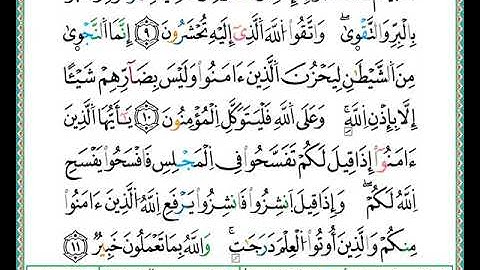 بِٱلْبِرِّ وَٱلتَّقْوَىٰ ۖ وَٱتَّقُوا۟ ٱللَّهَ ٱلَّذِىٓ إِلَيْهِ تُحْشَرُونَ ٩ إِنَّمَا ٱلنَّجْوَىٰ
مِنَ ٱلشَّيْطَـٰنِ لِيَحْزُنَ ٱلَّذِينَ ءَامَنُوا۟ وَلَيْسَ بِضَآرِّهِمْ شَيْـًٔا
إِلَّا بِإِذْنِ ٱللَّهِ ۚ وَعَلَى ٱللَّهِ فَلْيَتَوَكَّلِ ٱلْمُؤْمِنُونَ ١٠ يَـٰٓأَيُّهَا ٱلَّذِينَ
ءَامَنُوٓا۟ إِذَا قِيلَ لَكُمْ تَفَسَّحُوا۟ فِى ٱلْمَجَـٰلِسِ فَٱفْسَحُوا۟ يَفْسَحِ
ٱللَّهُ لَكُمْ ۖ وَإِذَا قِيلَ ٱنشُزُوا۟ فَٱنشُزُوا۟ يَرْفَعِ ٱللَّهُ ٱلَّذِينَ ءَامَنُوا۟
مِنكُمْ وَٱلَّذِينَ أُوتُوا۟ ٱلْعِلْمَ دَرَجَـٰتٍ ۚ وَٱللَّهُ بِمَا تَعْمَلُونَ خَبِيرٌ ١١